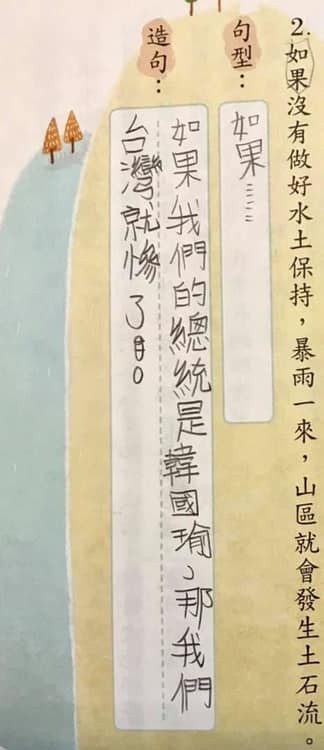 2.如果沒有做好水土保持，暴雨一來，山區就會發生土石流。
句型：
如果……
造句：
如果我們的總統是韓國瑜，那我們
台灣就慘了。